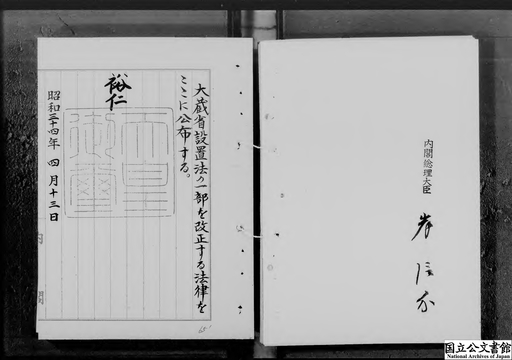 大蔵省設置法の一部を改正する法律を
ここに公布する。
裕仁
天皇御璽
昭和三十四年 四月十三日
内閣総理大臣
岸信介
国立公文書館
National Archives of Japan